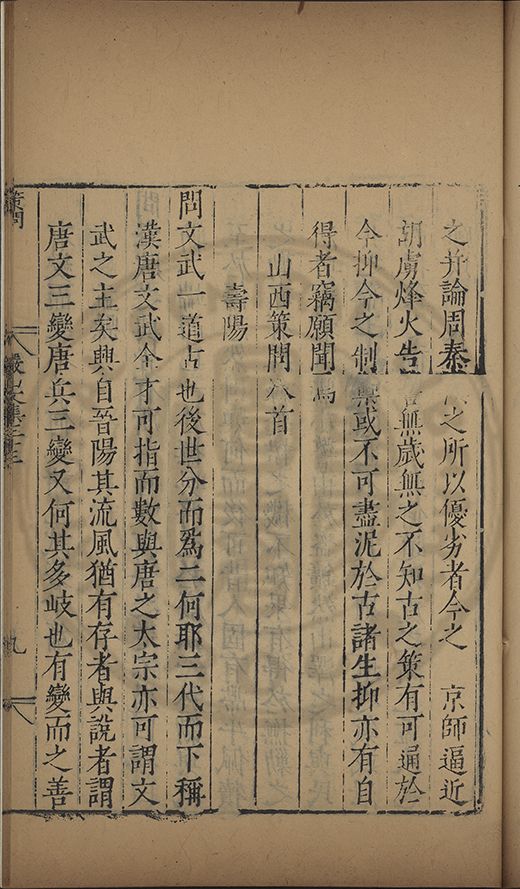 之并論周秦之所以優劣者今之　京師逼近
胡虜烽火告無歲無之不知古之策有可通於
今抑今之制禦或不可盡泥於古諸生抑亦有自
得者竊願聞焉
山西策問八首
壽陽
問文武一道古也後世分而爲二何耶三代而下稱
漢唐文武全才可指而數與唐之太宗亦可謂文
武之主矣興自晉陽其流風猶有存者與說者謂
唐文三變唐兵三變又何其多岐也有變而之善
策問
九